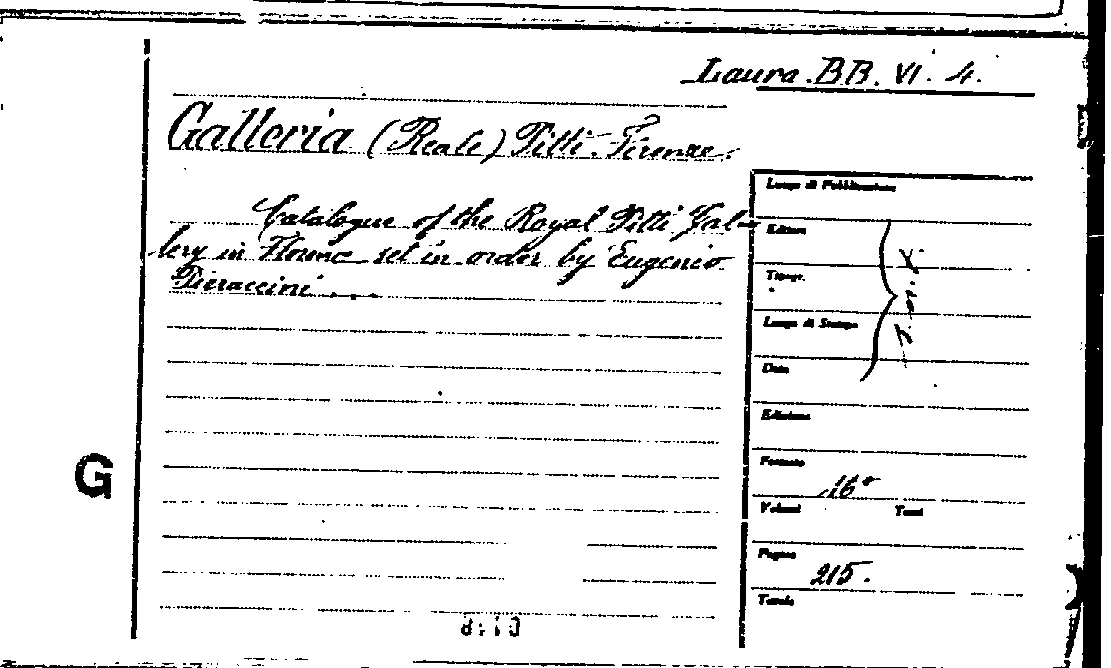 Laura BB. VI. 4.
Galleria (Reale) Pitti-Firenze.
Catalogue of the Royal Pitti Gal-
lery in Florence set in order by Eugenio
Pieraccini . . .
Luogo di Pubblicazione
Editore
Tipogr.
Luogo di Stampa
Data
Edizione
Formato 16°
Volumi Tomi
Pagine 215.
Tavole
G